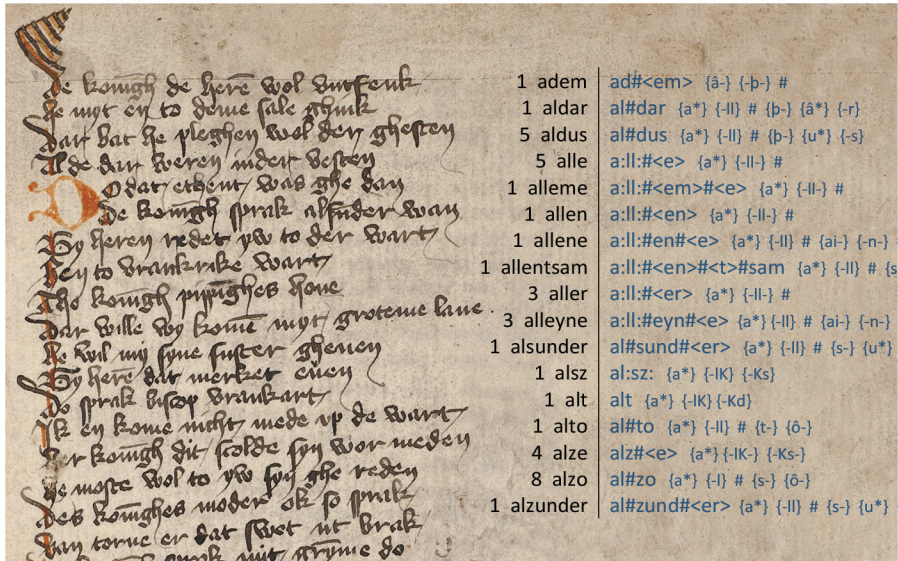 De konīgh de herē wol vntfenk
He myt en to deme sale ghink
Dar bat he pleghen wol der ghesten
Al de dar weren inder vesten
Do dat ethent was ghe dan
De konīgh sprak alsunder wan
Gy heren redet yw to der wart
Hen to vrankrike wart
Tho konīgh pippīghes houe
Dar wille wy komē myt groteme loue
He wil my syne suster gheuen
Gy herē dat merket euen
Do sprak biscop vrankart
Ik en kome nicht mede vp de wart
Her konīgh dit scolde syn vor meden
He moste wol to yw syn ghe reden
Des konīghes moder ok so sprak
Van torne er dat swet ut brak
sprak myt gryme do
1 adem ad#<em> {â-} {-þ-} #
1 aldar al#dar {a*} {-ll} # {þ-} {â*} {-r}
5 aldus al#dus {a*} {-ll} # {þ-} {u*} {-s}
5 alle a:ll:#<e> {a*} {-ll-} #
1 alleme a:ll:#<em>#<e> {a*} {-ll-} #
1 allen a:ll:#<en> {a*} {-ll-} #
1 allene a:ll:#en#<e> {a*} {-ll} # {ai-} {-n-}
1 allentsam a:ll:#<en>#<t>#sam {a*} {-ll} # {s
3 aller a:ll:#<er> {a*} {-ll-} #
3 alleyne a:ll:#eyn#<e> {a*} {-ll} # {ai-} {-n-}
1 alsunder al#sund#<er> {a*} {-ll} # {s-} {u*}
1 alsz al:sz: {a*} {-lK} {-Ks}
1 alt alt {a*} {-lK} {-Kd}
1 alto al#to {a*} {-ll} # {t-} {ô-}
4 alze alz#<e> {a*} {-lK-} {-Ks-}
8 alzo al#zo {a*} {-l} # {s-} {ô-}
1 alzunder al#zund#<er> {a*} {-ll} # {s-} {u*}